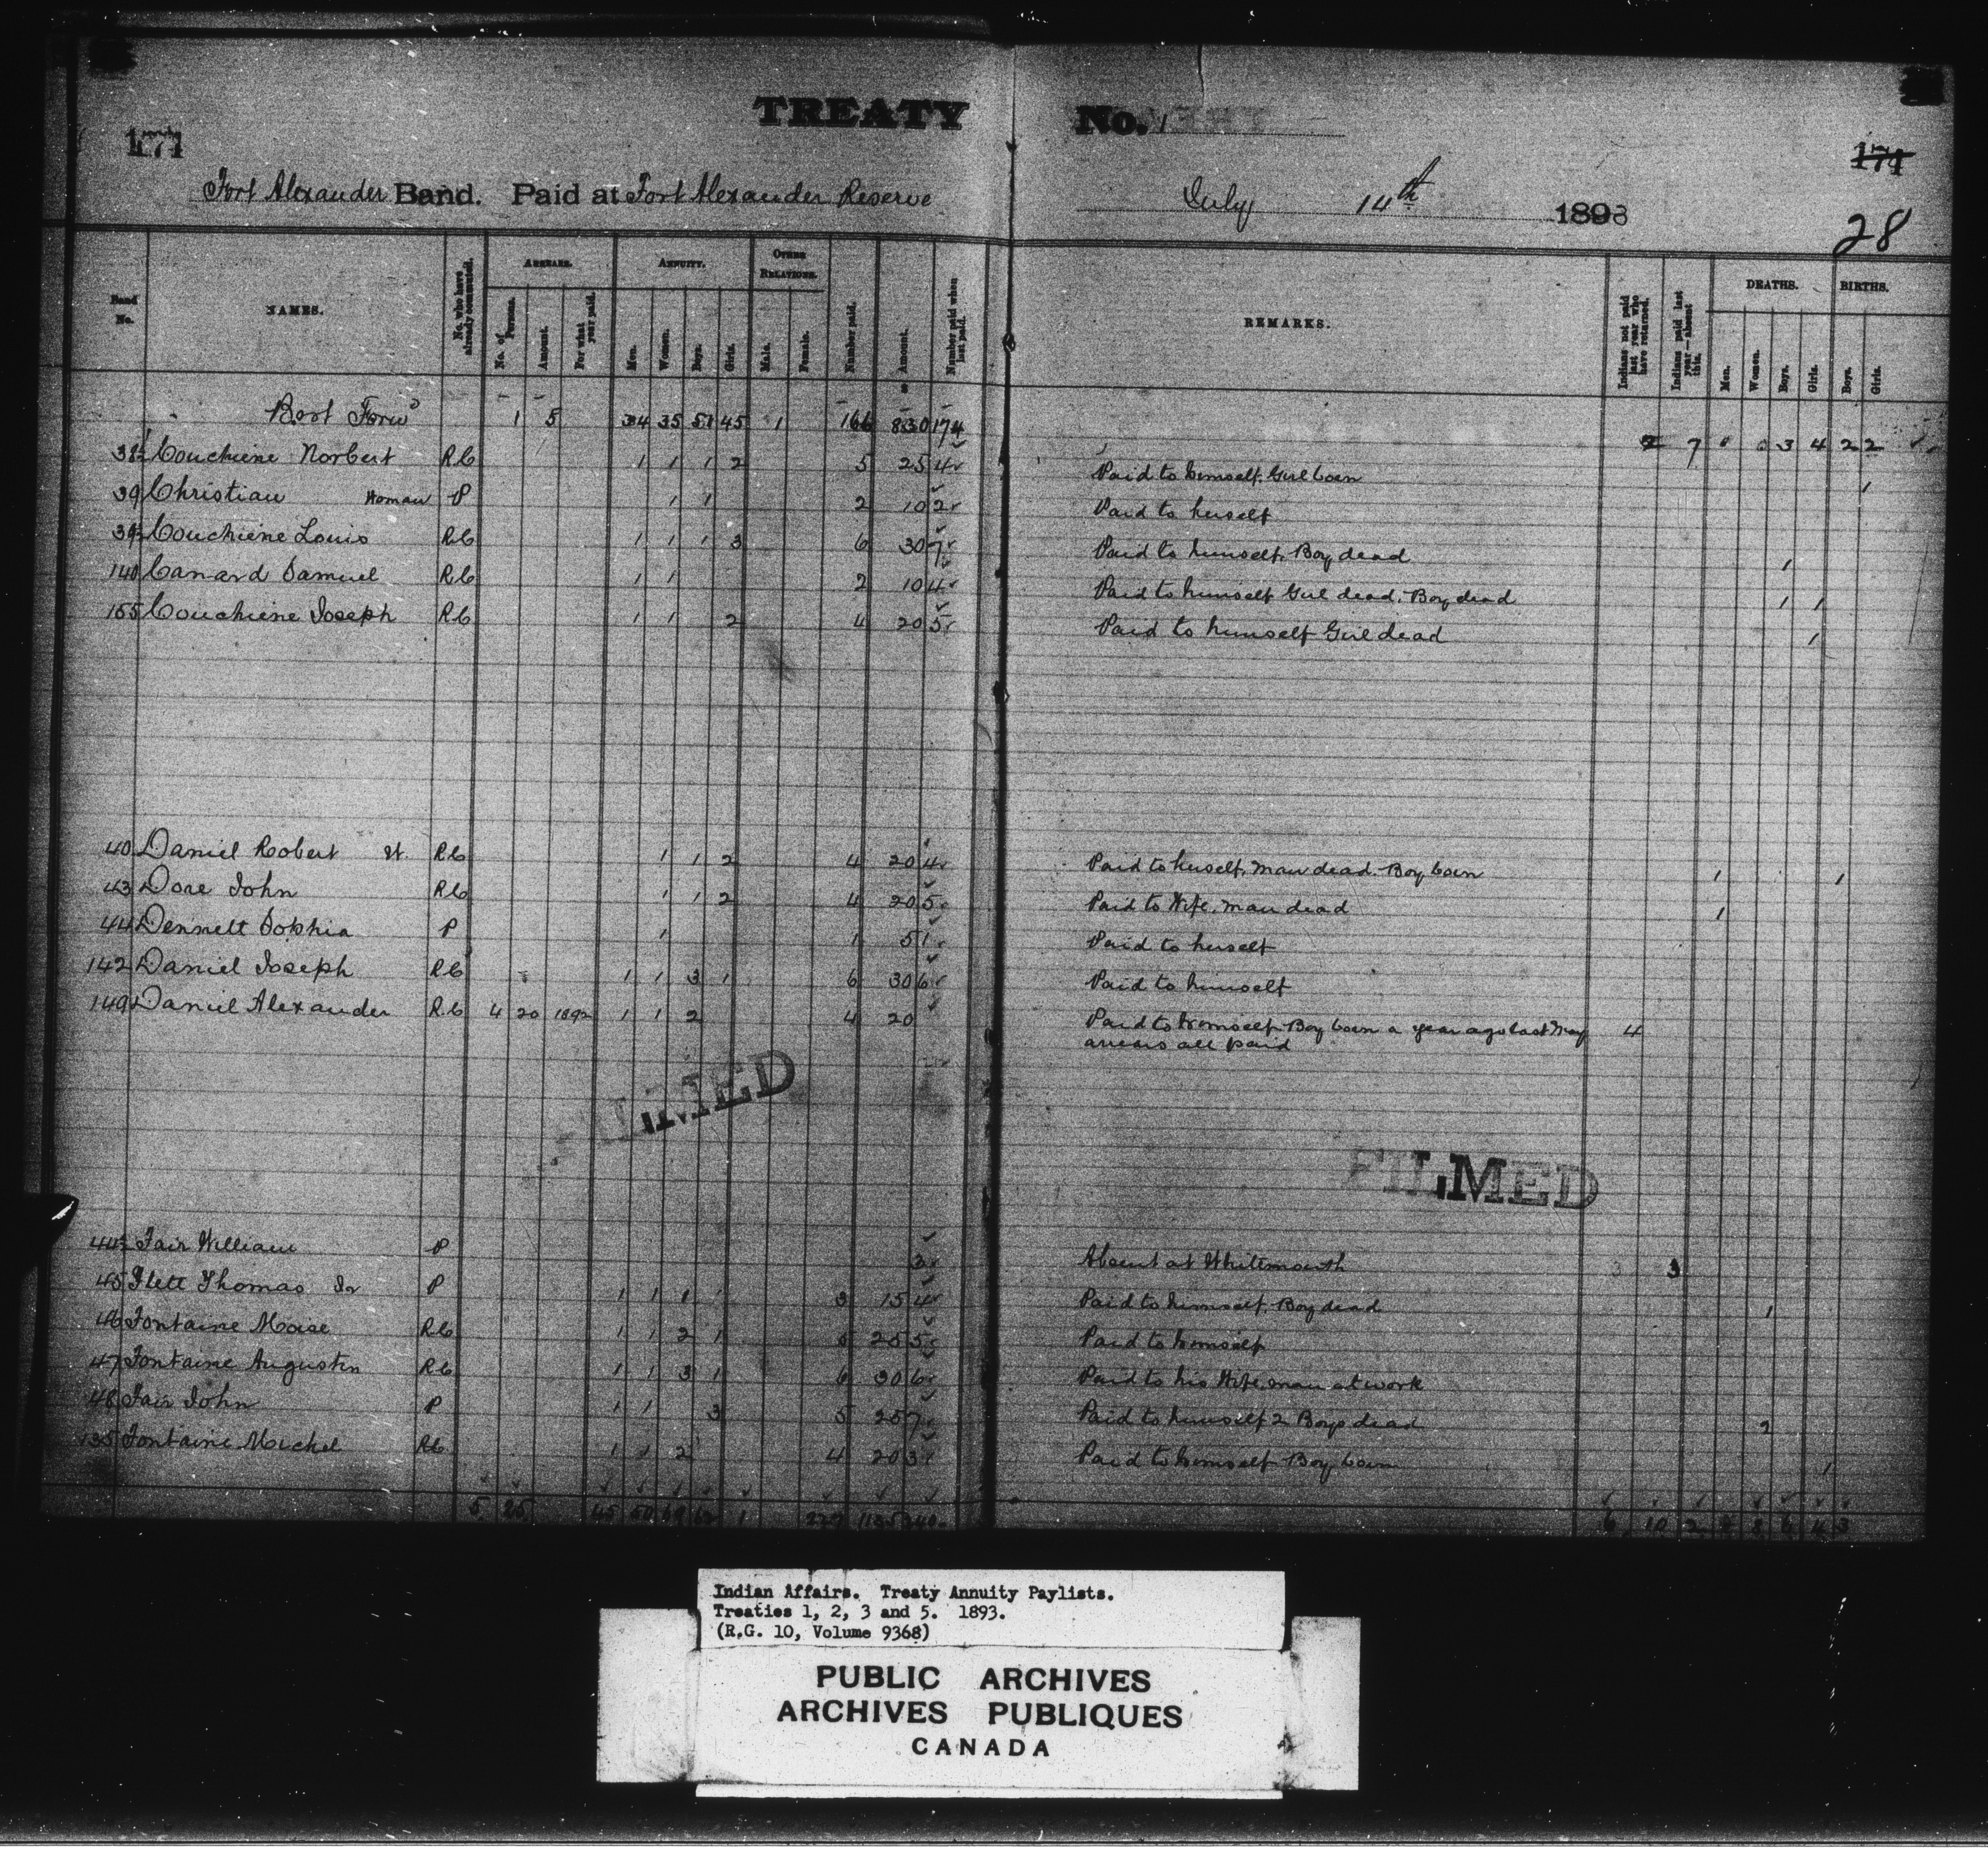 TREATY No. 1
171
174
Fort Alexander Band. Paid at Fort Alexander Reserve July 14th 1893
28
Band No. NAMES. No. who have already commuted. ARREARS. No. of Persons. Amount. For what year paid. ANNUITY. Men. Women. Boys. Girls. OTHER RELATIONS. Male. Female. Number paid. $ Amount. Number paid when last paid. REMARKS. Indians not paid last year who have returned. Indians paid last year—absent this. DEATHS. Men. Women. Boys. Girls. BIRTHS. Boys. Girls.
Bort Forwd 1 5 34 35 51 45 1 166 830 174 2 7 3 4 2 2
38½ Couchiene Norbert RC 1 1 1 2 5 25 4 Paid to himself. Girl born 1
39 Christian Woman P 1 1 2 10 2 Paid to herself
39½ Couchiene Louis RC 1 1 1 3 6 30 7 Paid to himself. Boy dead 1
140 Canard Samuel RC 1 1 2 10 4 Paid to himself Girl dead. Boy dead 1 1
155 Couchiene Joseph RC 1 1 2 4 20 5 Paid to himself Girl dead 1
40 Daniel Robert W. RC 1 1 2 4 20 4 Paid to herself. Man dead. Boy born 1 1
43 Dore John RC 1 1 2 4 20 5 Paid to Wife. Man dead 1
44 Dennett Sophia P 1 1 5 1 Paid to herself
142 Daniel Joseph RC 1 1 3 1 6 30 6 Paid to himself
149 Daniel Alexander R.C 4 20 1892 1 1 2 4 20 Paid to himself Boy born a year ago last May 4
arrears all paid
FILMED
FILMED
44½ Fair William P 3 Absent at Whitemouth 3
45 Flett Thomas Jr P 1 1 1 3 15 4 Paid to himself. Boy dead 1
46 Fontaine Moise RC 1 1 2 1 5 25 5 Paid to himself
47 Fontaine Augustin RC 1 1 3 1 6 30 6 Paid to his Wife. man at work
48 Fair John P 1 1 3 5 25 7 Paid to himself 2 Boys dead 2
135 Fontaine Michel RC 1 1 2 4 20 3 Paid to himself Boy born 1
5 25 45 50 69 62 1 227 1135 240 6 10 2 8 6 4 3
Indian Affairs. Treaty Annuity Paylists.
Treaties 1, 2, 3 and 5. 1893.
(R.G. 10, Volume 9368)
PUBLIC ARCHIVES
ARCHIVES PUBLIQUES
CANADA